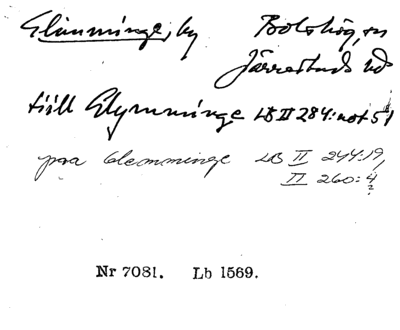 Glimminge, by Bolshög, sn
Järrestads hd
tiill Glymminge LB II 284: not 5
paa Glemminge LB II 244:19,
II 260: 4
?
Nr 7081. Lb 1569.